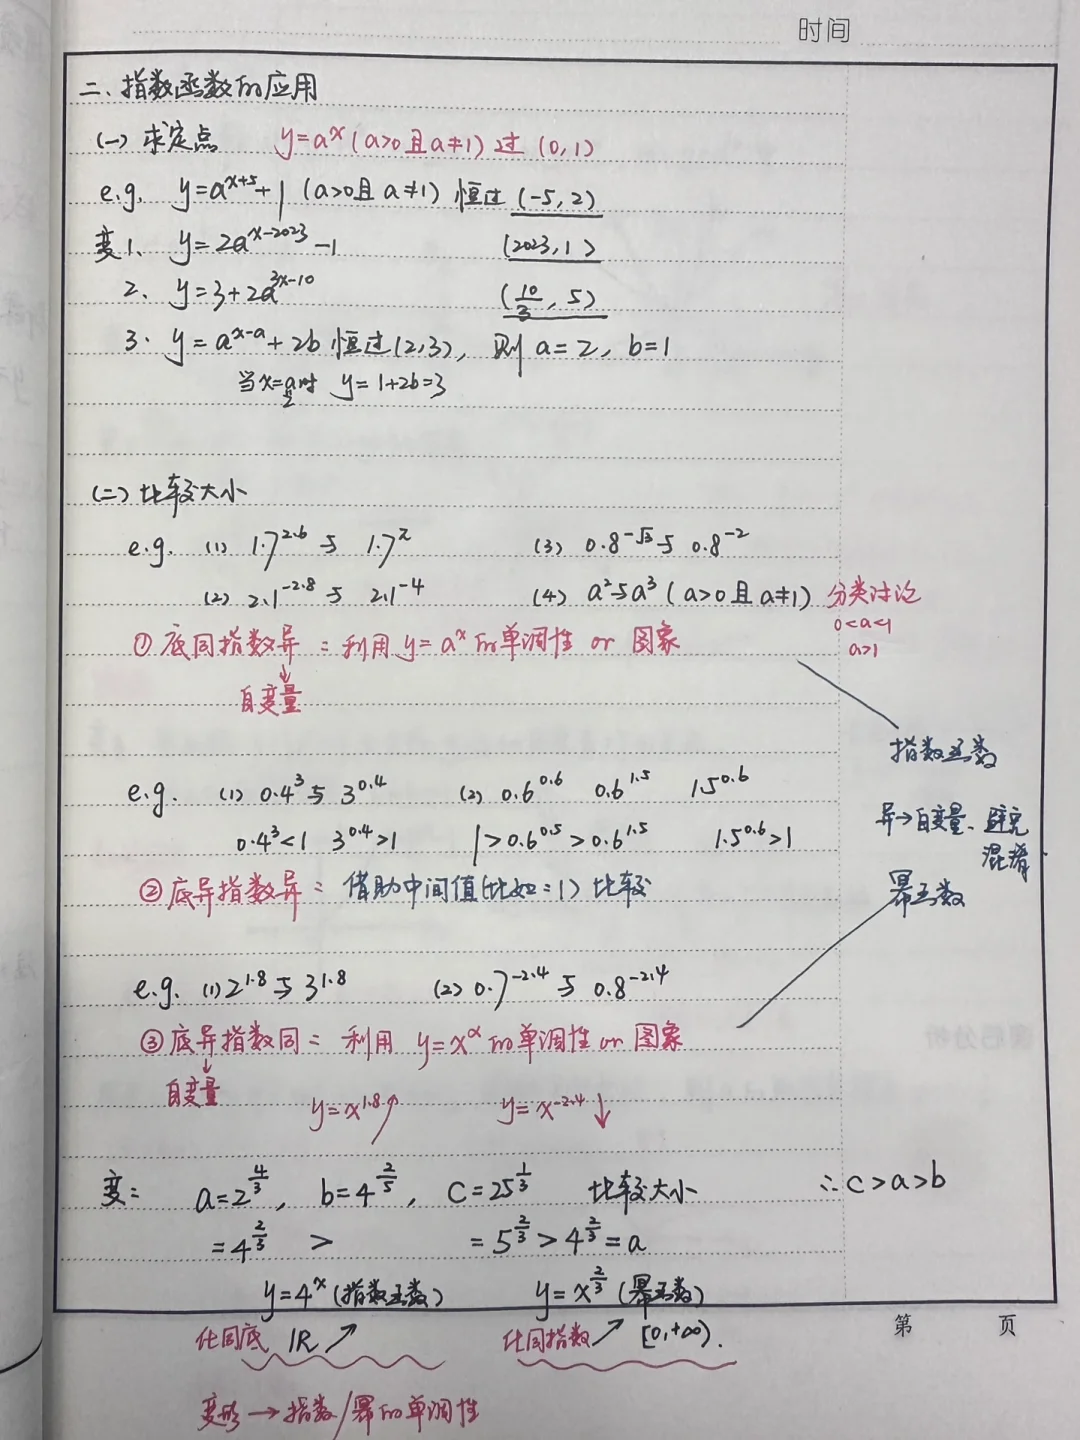 时间
二、指数函数的应用
(一) 求定点 y=aˣ (a>0且a≠1) 过 (0,1)
e.g. y=a^(x+5)+1 (a>0且a≠1) 恒过 (-5,2)
变1、 y=2a^(x-2023)-1 (2023,1)
2、 y=3+2a^(3x-10) (10/3, 5)
3. y=a^(x-a)+2b 恒过(2,3), 则 a=2, b=1
当x=a时 y=1+2b=3
2
(二) 比较大小
e.g. (1) 1.7^2.6 与 1.7^π (3) 0.8^(-√3) 与 0.8^(-2)
(2) 2.1^(-2.8) 与 2.1^(-4) (4) a²与a³ (a>0且a≠1) 分类讨论
0<a<1
a>1
① 底同指数异: 利用 y=aˣ的单调性 or 图象
↓
自变量
指数函数
e.g. (1) 0.4³与 3^0.4 (2) 0.6^0.6 0.6^1.5 1.5^0.6
异→自变量、避免
混淆
0.4³<1 3^0.4>1 1>0.6^0.5>0.6^1.5 1.5^0.6>1
② 底异指数异: 借助中间值(比如:1) 比较
幂函数
e.g. (1) 2^1.8 与 3^1.8 (2) 0.7^(-2.4) 与 0.8^(-2.4)
③ 底异指数同: 利用 y=x^α的单调性 or 图象
↓
自变量
y=x^1.8 ↗ y=x^(-2.4) ↓
变: a=2^(4/3), b=4^(2/5), c=25^(1/3) 比较大小 ∴c>a>b
=4^(2/3) > =5^(2/3)>4^(2/3)=a
y=4ˣ(指数函数) y=x^(2/3) (幂函数)
化同底 R ↗ 化同指数 ↗ [0,+∞).
第 页
变形→指数/幂的单调性